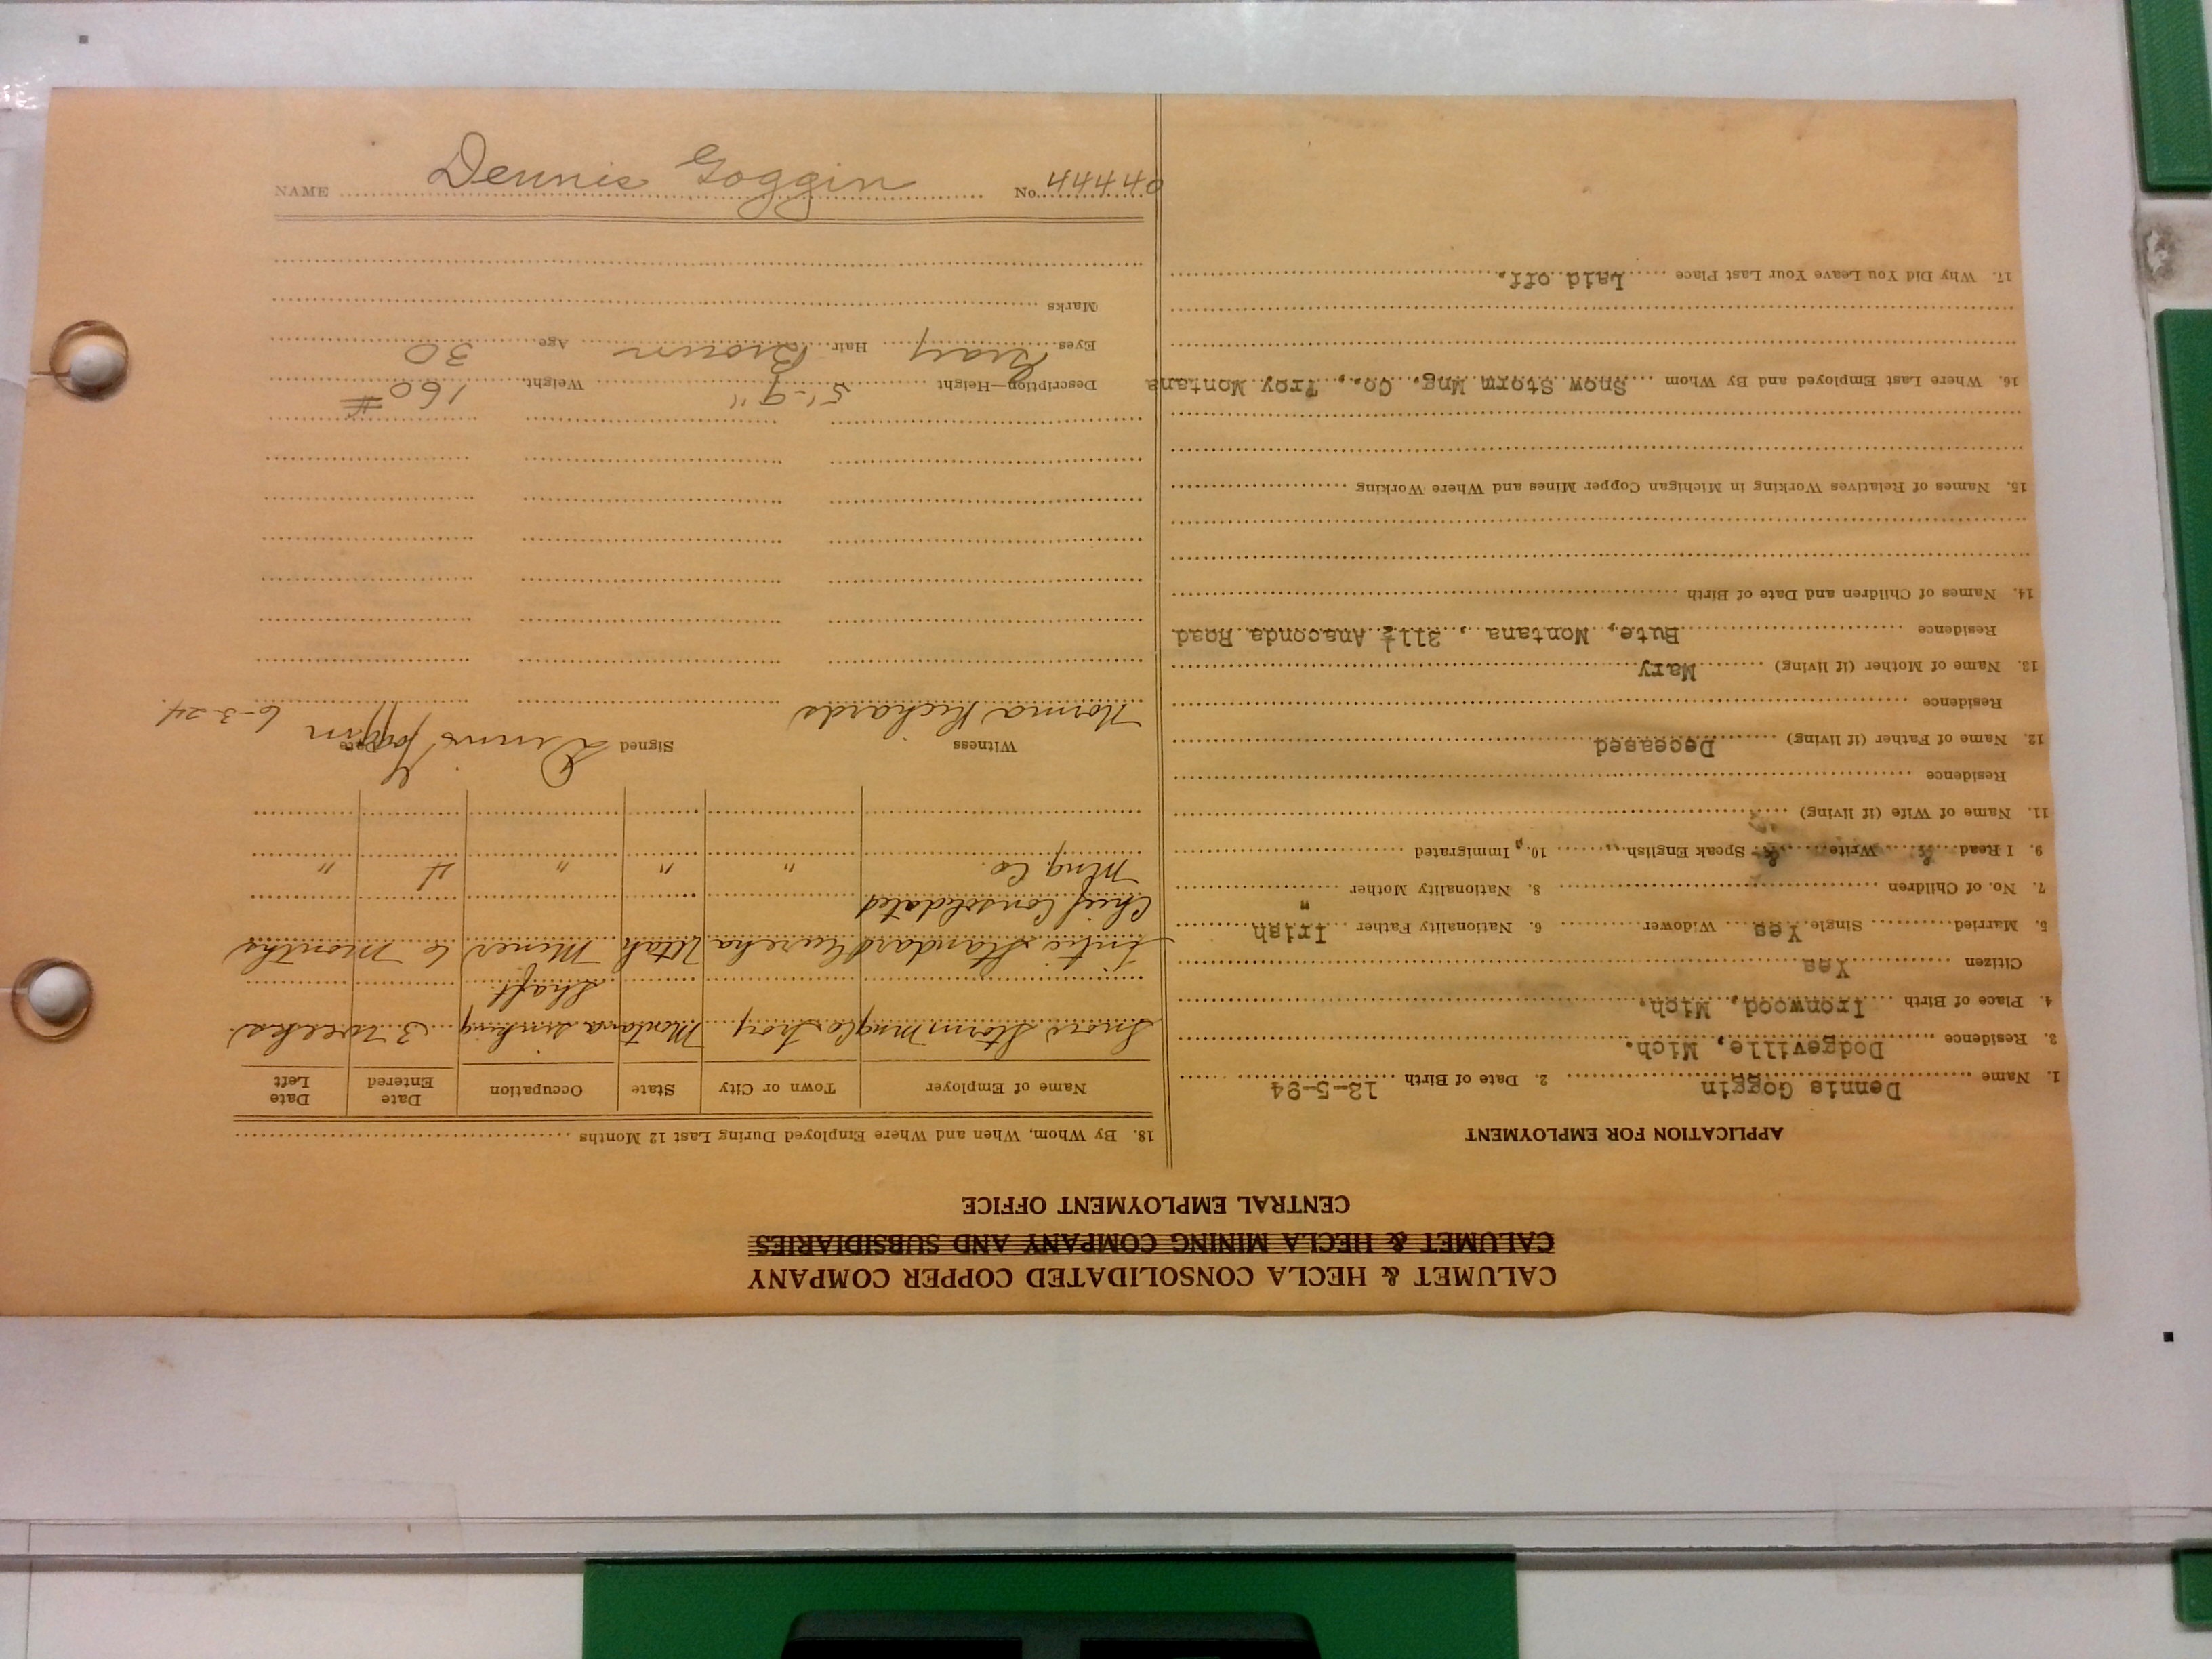 CALUMET & HECLA CONSOLIDATED COPPER COMPANY
CALUMET & HECLA MINING COMPANY AND SUBSIDIARIES
CENTRAL EMPLOYMENT OFFICE
APPLICATION FOR EMPLOYMENT
1. Name Dennis Goggin 2. Date of Birth 12-5-94
3. Residence Dodgeville, Mich.
4. Place of Birth Ironwood, Mich.
Citizen Yes
5. Married Single Yes Widower 6. Nationality Father Irish
7. No. of Children 8. Nationality Mother "
9. I Read & Write & Speak English 10. Immigrated
11. Name of Wife (if living)
Residence
12. Name of Father (if living) Deceased
Residence
13. Name of Mother (if living) Mary
Residence Bute, Montana, 311½ Anaconda Road
14. Names of Children and Date of Birth
15. Names of Relatives Working in Michigan Copper Mines and Where Working
16. Where Last Employed and By Whom Snow Storm Mng. Co., Troy Montana
17. Why Did You Leave Your Last Place Laid off.
18. By Whom, When and Where Employed During Last 12 Months
Name of Employer Town or City State Occupation Date Entered Date Left
Snow Storm Mng Co Troy Montana sinking 3 weeks.
Shaft
Tintic Standard Eureka Utah Miner 6 months
Chief Consolidated
Mng. Co. " " " 4 "
Witness Signed Date
Norma Richards Dennis Goggin 6-3-24.
Description—Height 5'-9" Weight 160 #
Eyes Gray Hair Brown Age 30
Marks
NAME Dennis Goggin No. 44440